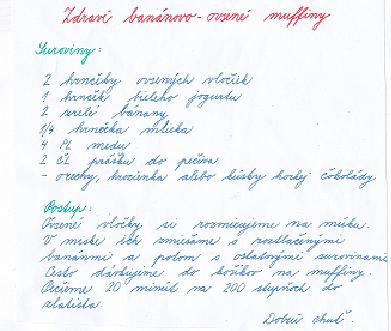 Zdraví banánovo-ovsené muffiny
Suroviny:
2 hrnčeky ovsených vločiek
1 hrnček bieleho jogurtu
2 zrelé banány
1/4 hrnčeka mlieka
4 PL medu
2 ČL prášku do pečiva
- orechy, hrozienka alebo kúsky horkej čokolády
Postup:
Ovsené vločky si rozmixujeme na múku.
V miske ich zmiešame s roztlačenými
banánmi a potom s ostatnými surovinami
Cesto dávkujeme do košíkov na muffiny.
Pečieme 20 minút na 200 stupňoch do
zlatista.
Dobrú chuť.